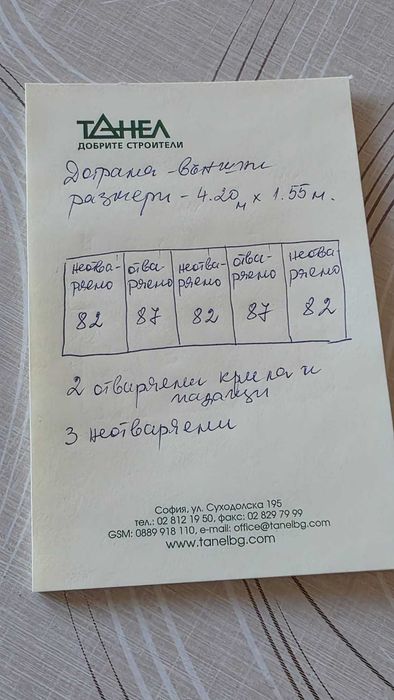 ТАНЕЛ
ДОБРИТЕ СТРОИТЕЛИ
Дограма - външни
размери - 4.20 м x 1.55 м.
неотва- отва- неотва- отва- неотва-
ряемо ряемо ряемо ряемо ряемо
82 87 82 87 82
2 отваряеми крила и
падащи
3 неотваряеми
София, ул. Суходолска 195
тел.: 02 812 19 50, факс: 02 829 79 99
GSM: 0889 918 110, e-mail: office@tanelbg.com
www.tanelbg.com